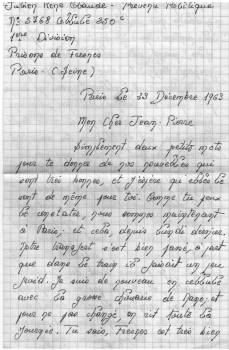 Julien René Claude - Prévenu Politique
N° 5768 Cellule 350 c
1ère Division
Prisons de Fresnes
Paris - (Seine)
Paris le 23 Décembre 1963
Mon Cher Jean-Pierre
Simplement deux petits mots
pour te donner de nos nouvelles qui
sont très bonnes, et j'espère qu'elles
sont de même pour toi. Comme tu peux
le constater, nous sommes maintenant
à Paris; et cela depuis lundi dernier.
Notre transfert s'est bien passé, à part
que dans le train il faisait un peu
froid. Je suis de nouveau en cellule
avec la
pour ne pas changer, on rit toute la
journée. Tu sais, Fresnes est très bien